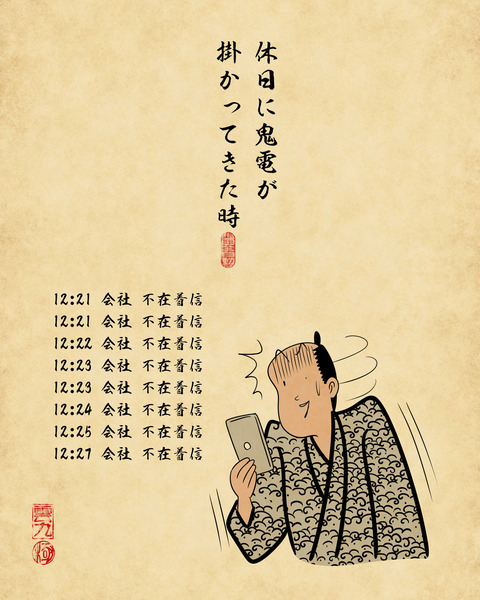 休日に鬼電が
掛かってきた時
12:21 会社 不在着信
12:21 会社 不在着信
12:22 会社 不在着信
12:23 会社 不在着信
12:23 会社 不在着信
12:24 会社 不在着信
12:25 会社 不在着信
12:27 会社 不在着信